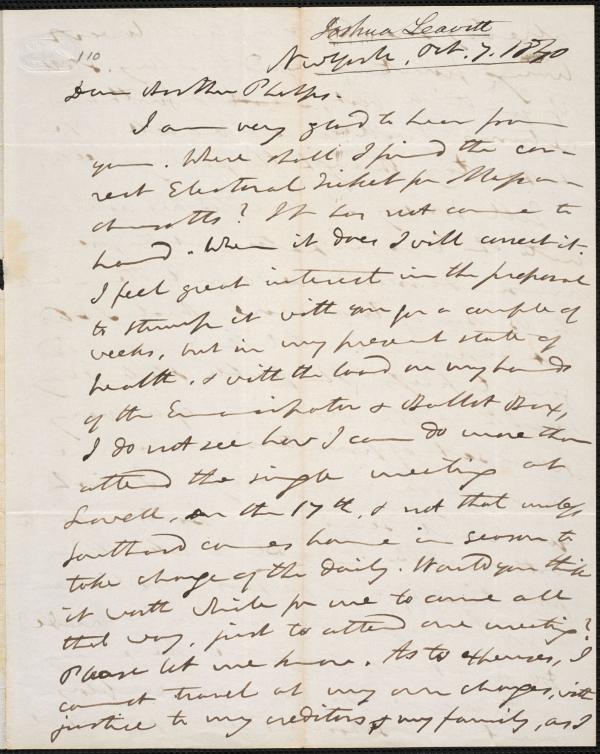 Joshua Leavitt
110
New York, Oct. 7. 1840
Dear Brother Phelps.
I am very glad to hear from
you. Where shall I find the cor-
rect Electoral Ticket for Massa-
chusetts? It has not come to
hand. When it does I will correct it.
I feel great interest in the proposal
to stump it with you for a couple of
weeks, but in my present state of
health, & with the load on my hands
of the Emancipator & Ballot Box,
I do not see how I can do more than
attend the single meeting at
Lowell, on the 17th, & not that unless
Southard comes home in season to
take charge of the daily. Would you think
it worth while for me to come all
that way, just to attend one meeting?
Please let me know. As to expenses, I
cannot travel at my own charges, with
justice to my creditors & my family, as I